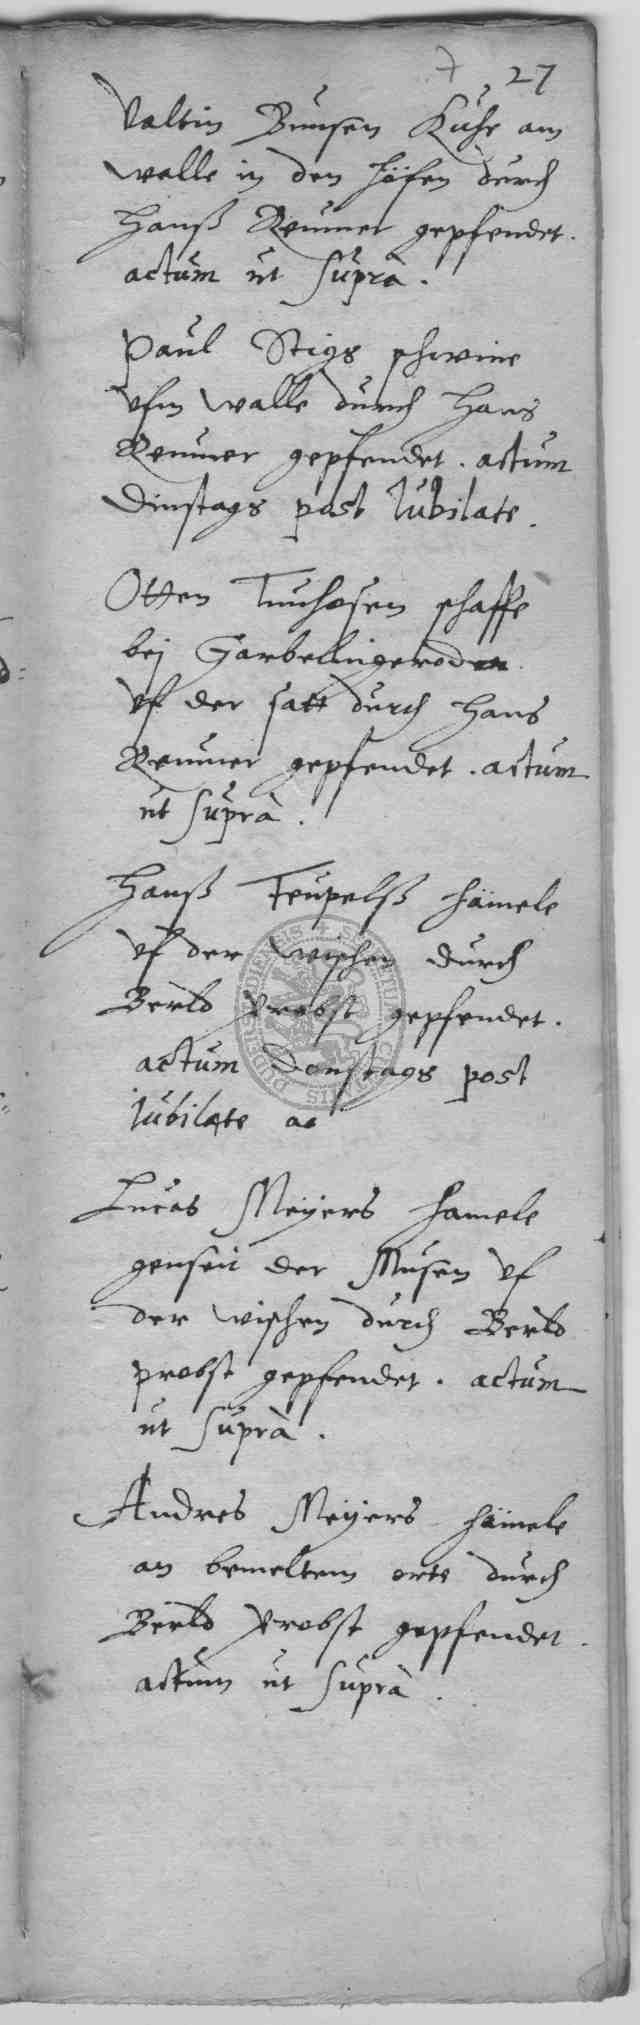 7 27
Valtin Bunsen Kuhe am
walle in den höfen durch
Hanß Renner gepfendet.
actum ut suprà.
Paul Stigs schwine
vfm walle durch Hans
Renner gepfendet. actum
Dinstags post Iubilate.
Otten Tunhosen schaffe
bej Garbelingeroden
vf der satt durch Hans
Renner gepfendet. actum
ut suprà.
Hanß Teupelß hämele
vf der wischen durch
Berld Probst gepfendet.
actum Donstags post
Iubilate
Lucas Meyers hamele
genseit der Musen vf
der wischen durch Berld
probst gepfendet. actum
ut suprà.
Andres Meyers hämele
an bemeltem orte durch
Berld Probst gepfendet.
actum ut suprà.